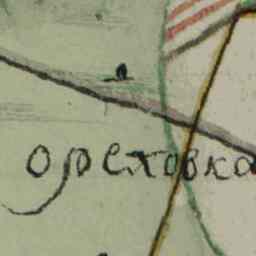 ореховка